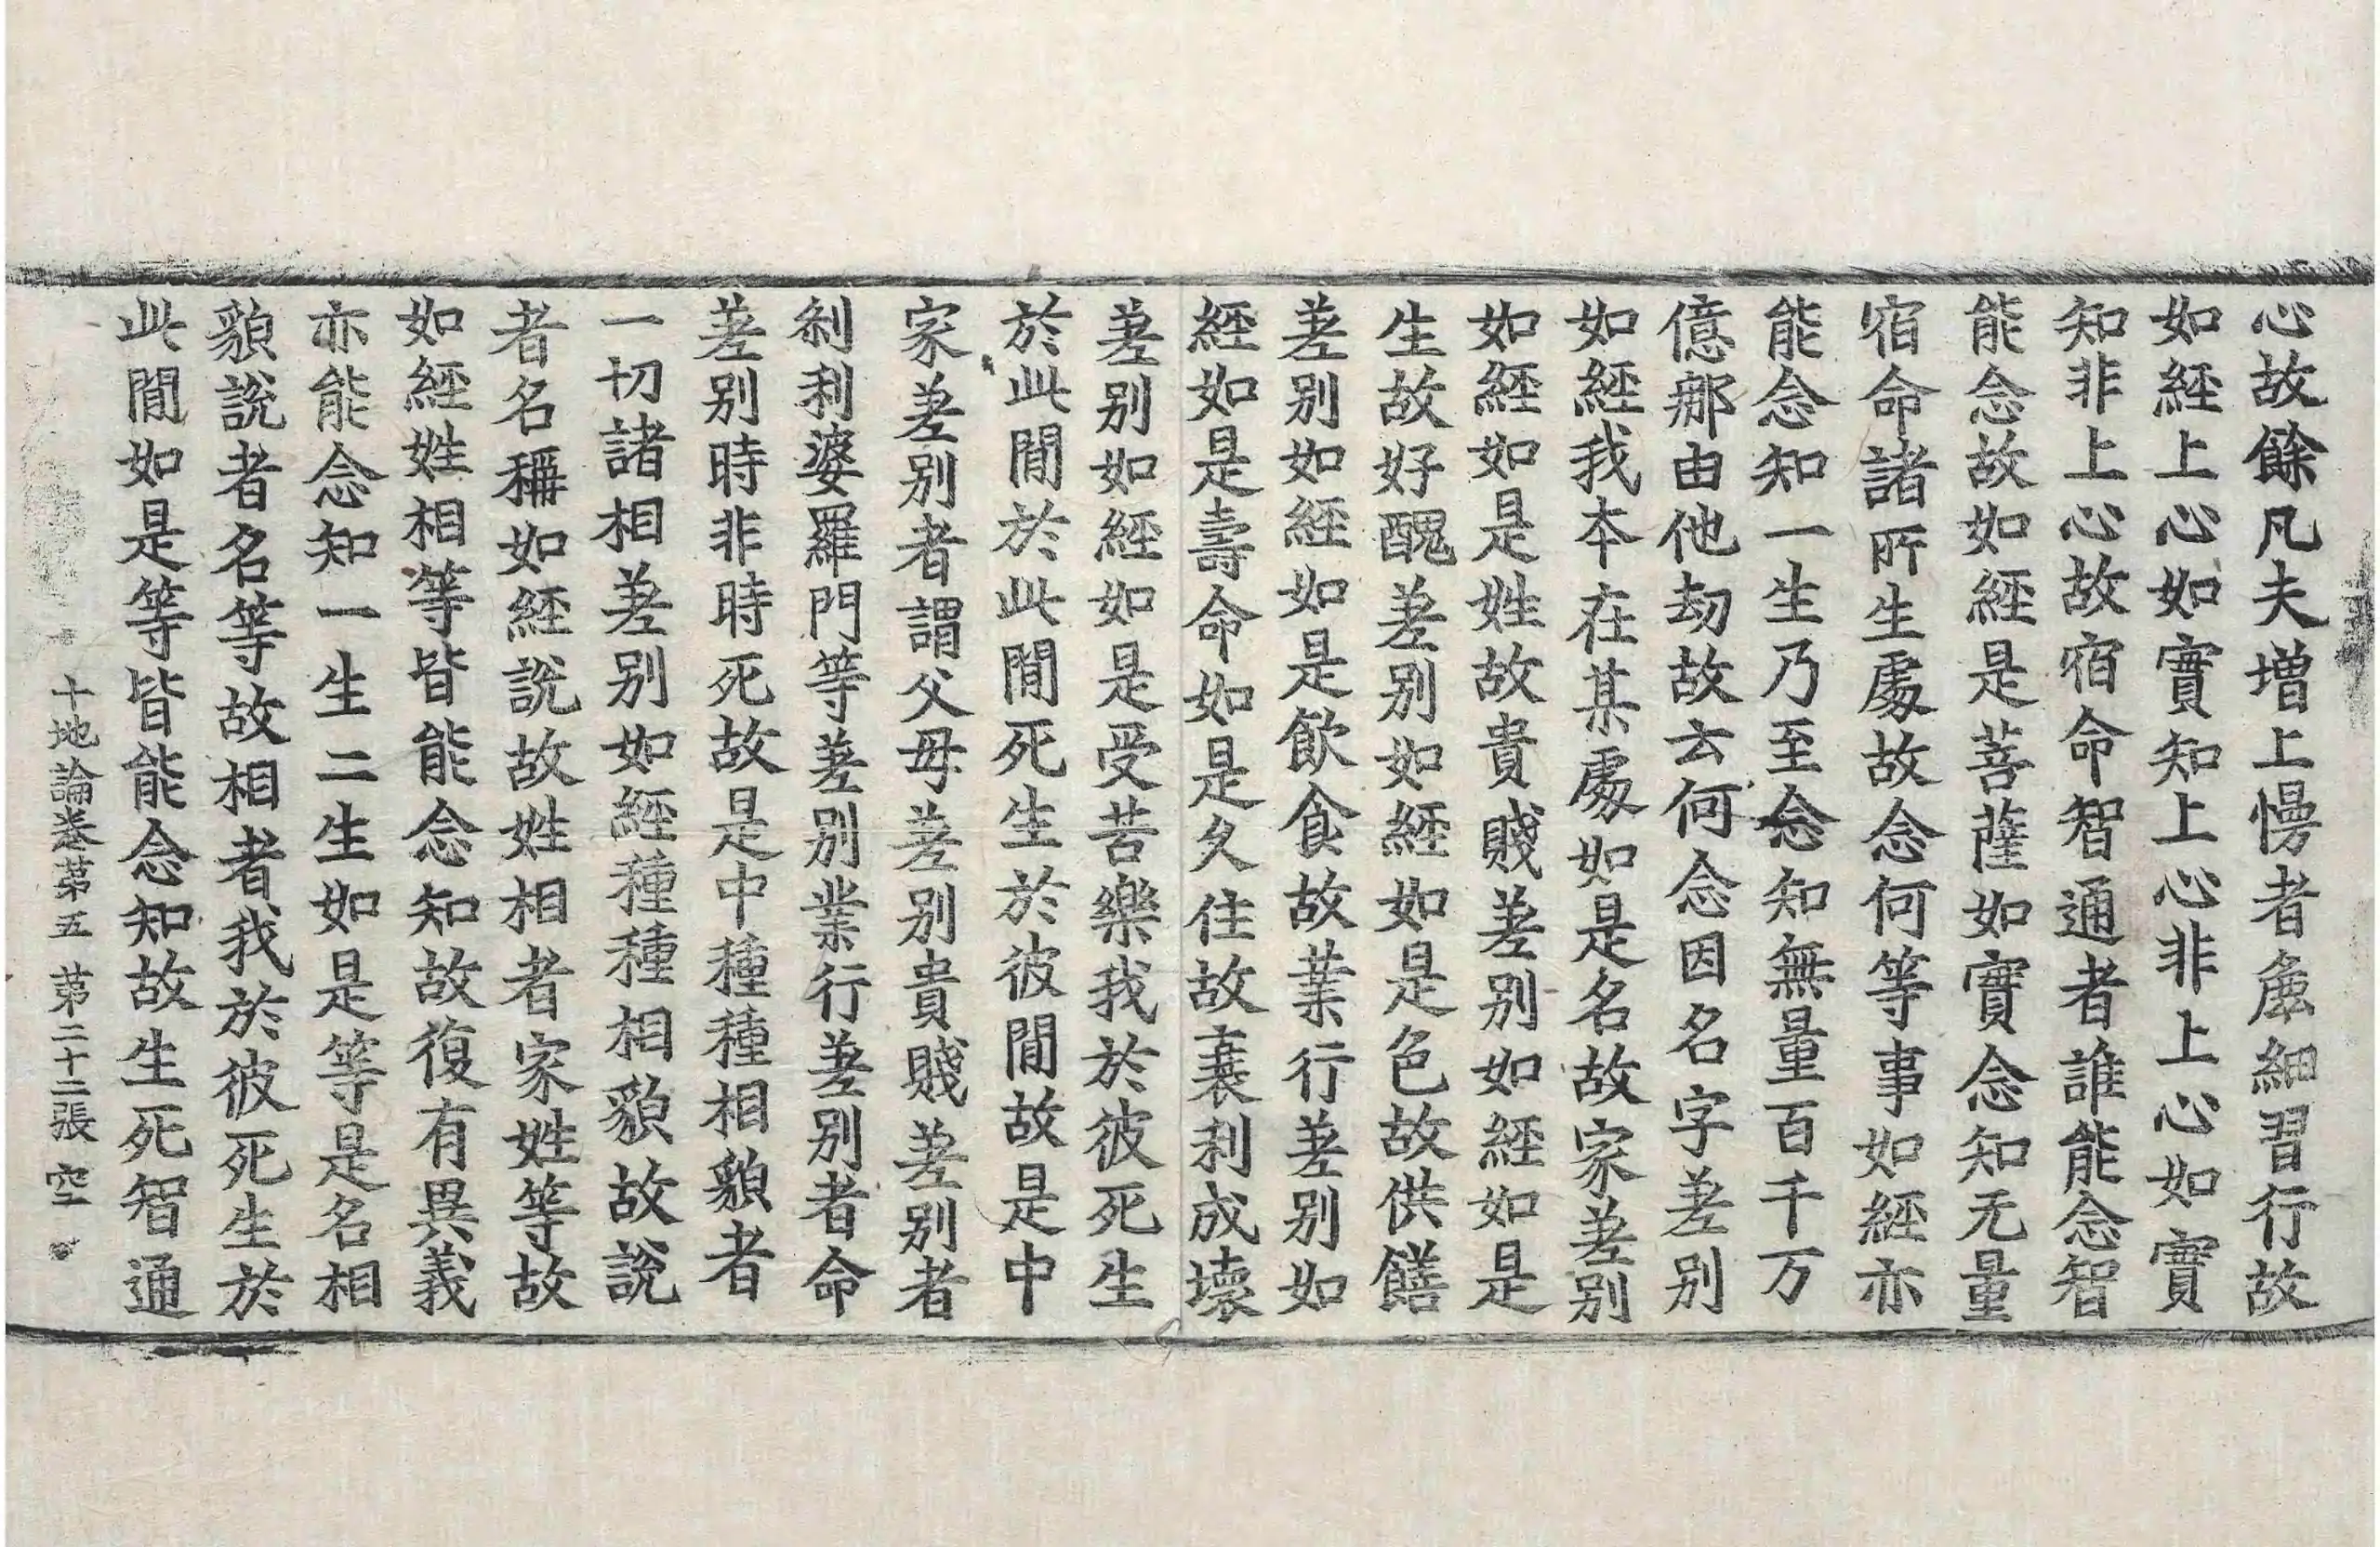 心故餘凡夫增上慢者麁細習行故
如經上心如實知上心非上心如實
知非上心故宿命智通者誰能念智
能念故如經是菩薩如實念知无量
宿命諸所生處故念何等事如經亦
能念知一生乃至念知無量百千万
億那由他劫故云何念因名字差别
如經我本在某處如是名故家差别
如經如是姓故貴賤差别如經如是
生故好醜差别如經如是色故供饍
差别如經如是飲食故業行差别如
經如是壽命如是久住故衰利成壞
差别如經如是受苦樂我於彼死生
於此間於此間死生於彼間故是中
家差别者謂父母差别貴賤差别者
刹利婆羅門等差别業行差别者命
差别時非時死故是中種種相貌者
一切諸相差别如經種種相貌故說
者名稱如經說故姓相者家姓等故
如經姓相等皆能念知故復有異義
亦能念知一生二生如是等是名相
貌說者名等故相者我於彼死生於
此間如是等皆能念知故生死智通
十地論卷苐五 苐二十二張 空